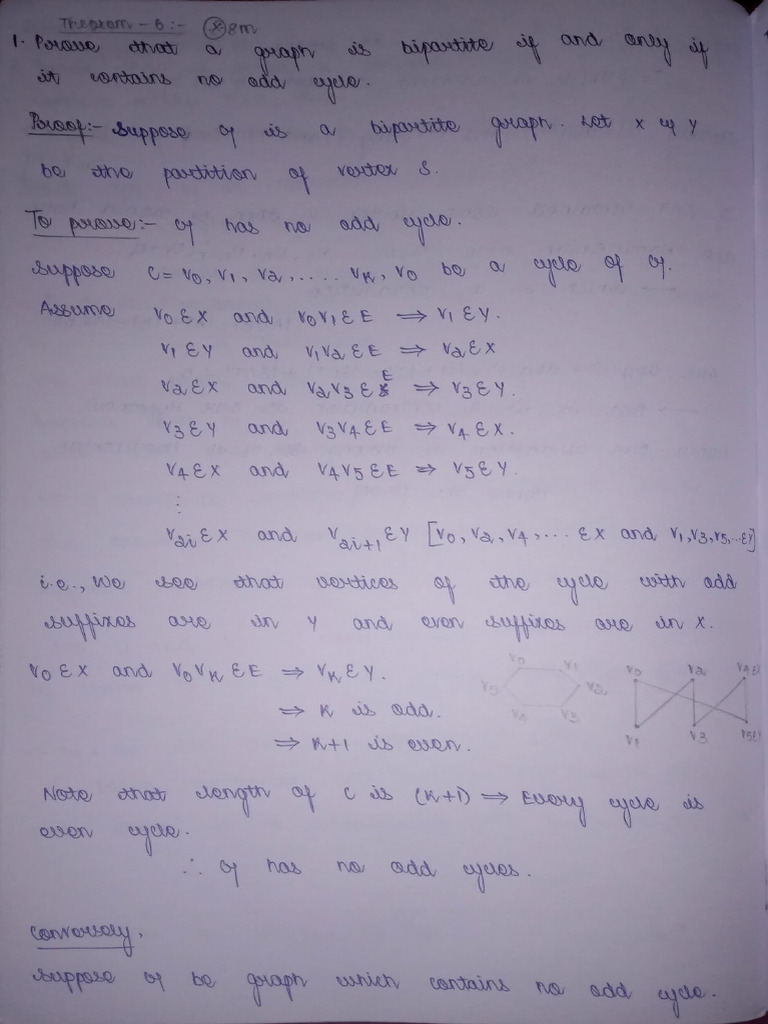 Theorem - 6 :- 8m
1. Prove that a graph is bipartite if and only if
it contains no odd cycle.
Proof:- Suppose G is a bipartite graph. Let X & Y
be the partition of vertex S.
To prove:- G has no odd cycle.
Suppose C = v0, v1, v2, ..... vk, v0 be a cycle of G.
Assume v0 ∈ X and v0v1 ∈ E ⇒ v1 ∈ Y.
v1 ∈ Y and v1v2 ∈ E ⇒ v2 ∈ X
v2 ∈ X and v2v3 ∈ E ⇒ v3 ∈ Y.
v3 ∈ Y and v3v4 ∈ E ⇒ v4 ∈ X.
v4 ∈ X and v4v5 ∈ E ⇒ v5 ∈ Y.
⋮
v2i ∈ X and v2i+1 ∈ Y [v0, v2, v4, ... ∈ X and v1, v3, v5, ... ∈ Y]
i.e., we see that vertices of the cycle with odd
suffixes are in Y and even suffixes are in X.
v0 ∈ X and v0vk ∈ E ⇒ vk ∈ Y.
⇒ k is odd.
⇒ k+1 is even.
v0 v1
v5 v2
v4 v3
v0 v2 v4 ∈ X
v1 v3 v5 ∈ Y
Note that length of C is (k+1) ⇒ Every cycle is
even cycle.
∴ G has no odd cycles.
Conversely,
Suppose G be graph which contains no odd cycle.